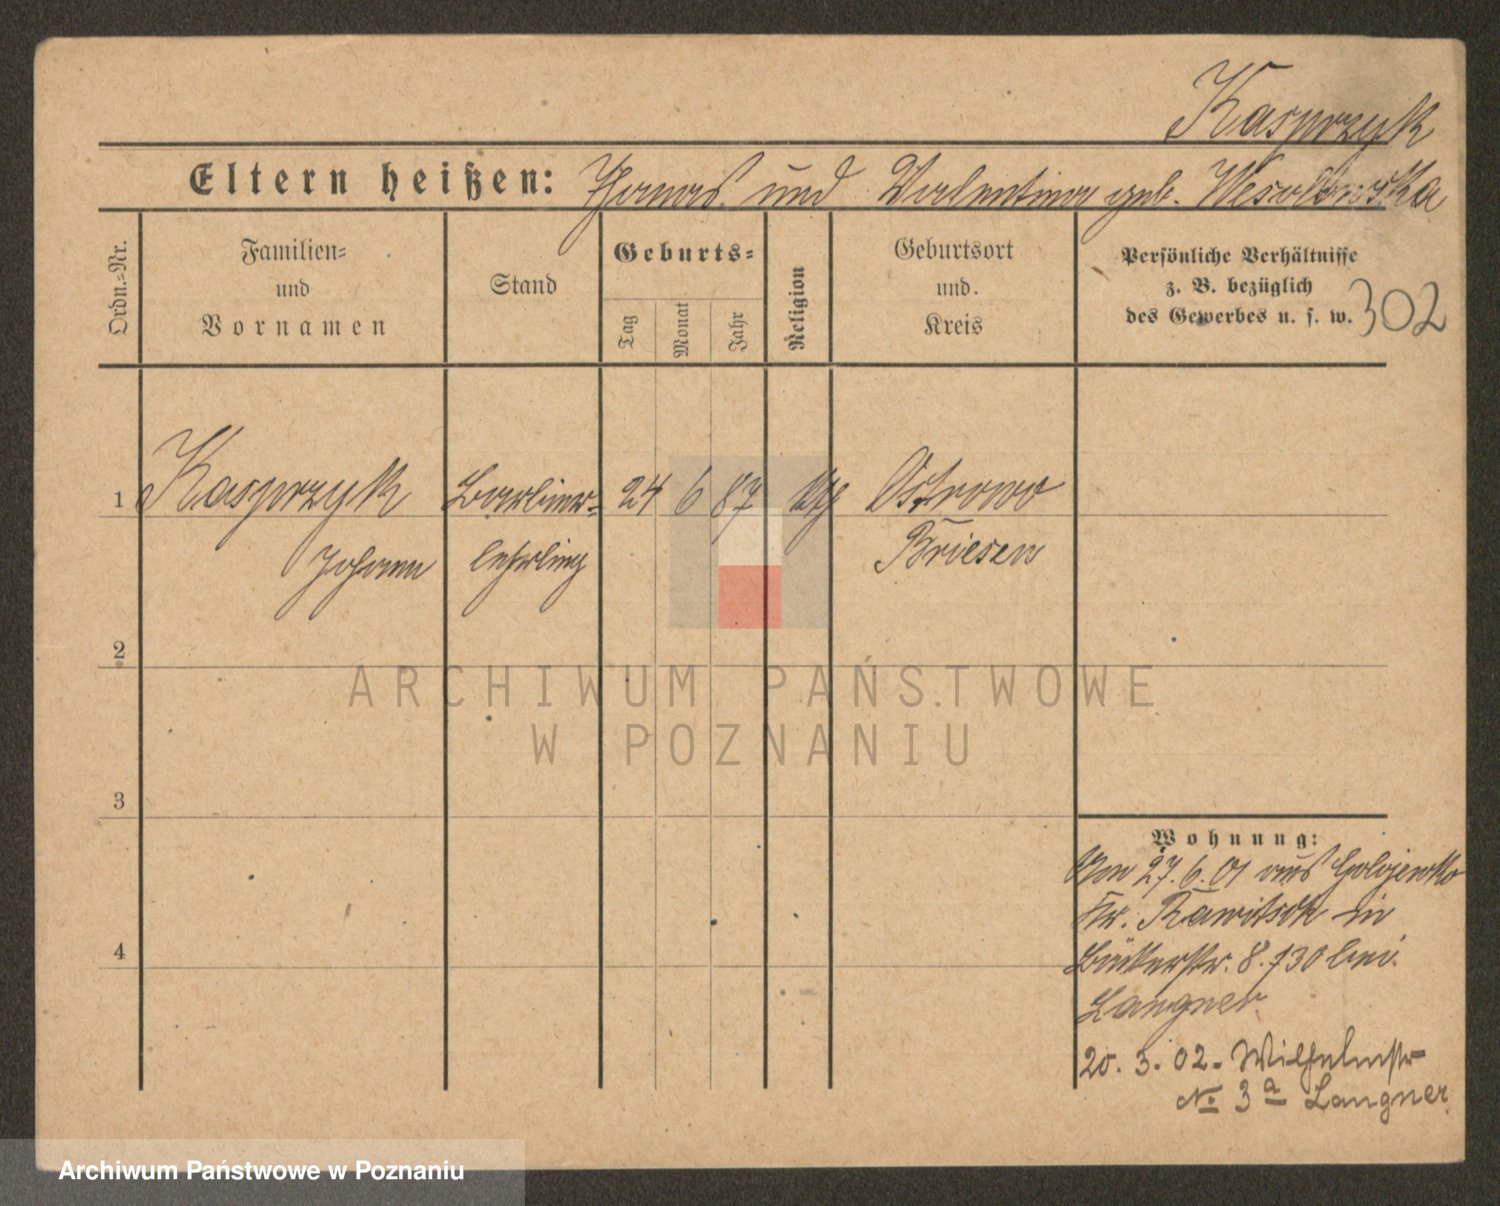 Kasprzyk
Eltern heißen: Thomas und Valentina geb. Wesolowska
Ordn.-Nr.
Familien-
und
Vornamen
Stand
Geburts-
Tag
Monat
Jahr
Religion
Geburtsort
und
Kreis
Persönliche Verhältnisse
z. B. bezüglich
des Gewerbes u. s. w.
302
1 Kasprzyk Barbier- 24 6 87 Ostrowo
Johann lehrling Briesen
2
3
4
ARCHIWUM PAŃSTWOWE
W POZNANIU
Wohnung:
27.6.01 aus Golejewko
Kr. Rawitsch in
8. 130 bei
Langner.
20. 3. 02. Wilhelmstr
No 3a Langner.
Archiwum Państwowe w Poznaniu